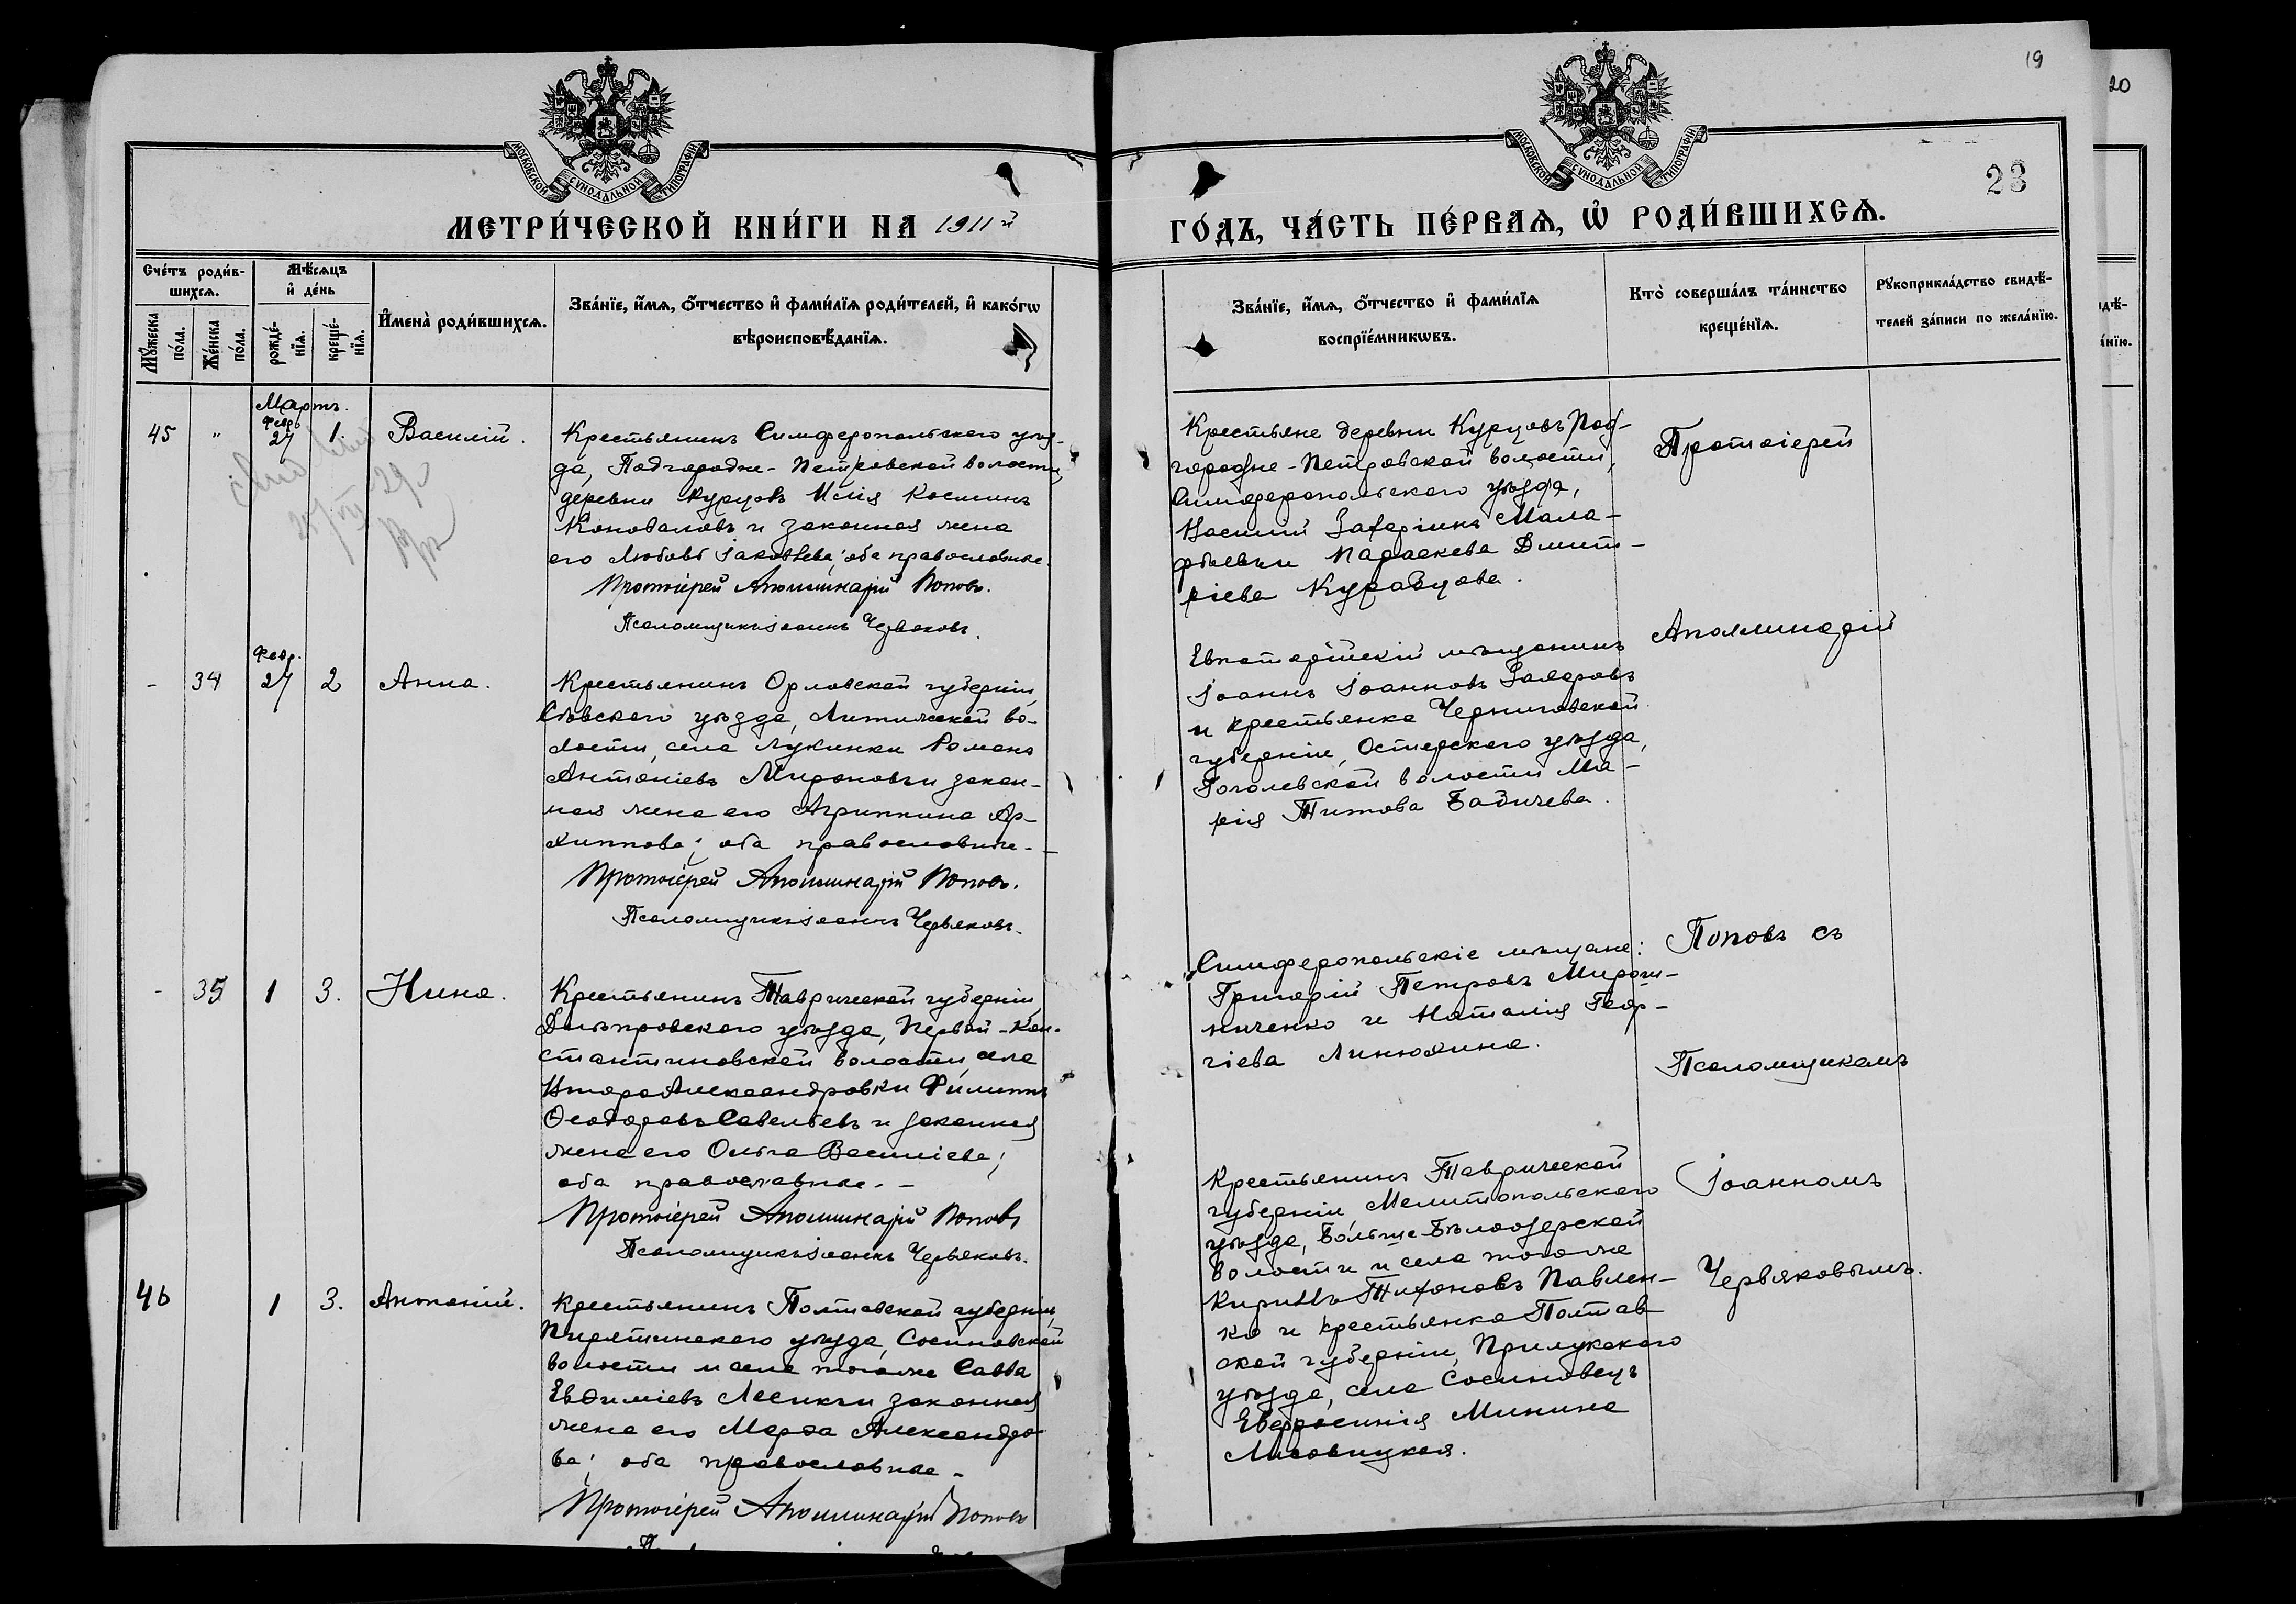 19
20
23
МОСКОВСКОЙ СѴНОДАЛЬНОЙ ТИПОГРАФІИ
МОСКОВСКОЙ СѴНОДАЛЬНОЙ ТИПОГРАФІИ
МЕТРИ́ЧЕСКОЙ КНИ́ГИ НА 1911й
ГО́ДЪ, ЧА́СТЬ ПЕ́РВАЯ, Ѡ҆ РОДИ́ВШИХСЯ.
Сче́тъ роди́в-
шихся.
Мѣ́сяцъ
и҆ де́нь
Мꙋ́жеска по́ла.
Же́нска по́ла.
рожде́-нїя.
креще́-нїя.
И҆мена̀ роди́вшихся.
Зва́нїе, и҆́мя, ѻ҆́тчество и҆ фами́лїя роди́телей, и҆ како́гѡ
вѣроисповѣ́данїя.
Зва́нїе, и҆́мя, ѻ҆́тчество и҆ фами́лїя
воспрїе́мникѡвъ.
Кто̀ соверша́лъ та́инство
креще́нїя.
Рꙋкоприкла́дство свидѣ́-
телей за́писи по жела́нїю.
Мартъ.
Февр.
45 " 27 1. Василій.
Крестьянинъ Симферопольскаго уѣз-
да, Подгородне-Петровской волости,
деревни Курцовъ Илія Косминъ
Коноваловъ и законная жена
его Любовь Іаковлева; оба православные.
Протоіерей Аполлинарій Поповъ.
Псаломщикъ Іоаннъ Червяковъ.
Крестьяне деревни Курцовъ Под-
городне-Петровской волости,
Симферопольскаго уѣзда,
Василій Захаріинъ Мала-
и Параскева Димит-
ріева Куравцова.
Протоіерей
Февр.
- 34 27 2 Анна.
Крестьянинъ Орловской губерніи,
Сѣвскаго уѣзда, во-
лости, села Лукинки Романъ
Антоніевъ Мироновъ и закон-
ная жена его Агриппина Ар-
хиппова; оба православные. -
Протоіерей Аполлинарій Поповъ.
Псаломщикъ Іоаннъ Червяковъ.
Евпаторійскій мѣщанинъ
Іоаннъ Іоанновъ
и крестьянка Черниговской
губерніи, Остерскаго уѣзда,
Гоголевской волости Ма-
рія Титова Бабичева.
Аполлинарій
- 35 1 3. Нина.
Крестьянинъ Таврической губерніи,
Днѣпровскаго уѣзда, Первой-Кон-
стантиновской волости, села
Второалександровки Филиппъ
Ѳеодоровъ Савельевъ и законная
жена его Ольга Василіева;
оба православные. -
Протоіерей Аполлинарій Поповъ
Псаломщикъ Іоаннъ Червяковъ.
Симферопольскіе мѣщане:
Григорій Петровъ Мирош-
ниченко и Наталія Геор-
гіева Линюхина.
Поповъ съ
Псаломщикомъ
46 1 3. Антоній.
Крестьянинъ Полтавской губерніи,
Пирятинскаго уѣзда, Сасиновской
волости и села того же Савва
Евѳиміевъ Лесикъ и законная
жена его Марѳа Александро-
ва; оба православные -
Протоіерей Аполлинарій Поповъ
Крестьянинъ Таврической
губерніи Мелитопольскаго
уѣзда, Больше-Бѣлозерской
волости и села того же
Кириллъ Тихоновъ Павлен-
ко и крестьянка Полтав
ской губерніи, Прилукскаго
уѣзда, села
Евфросинія Минина
Лисовицкая.
Іоанномъ
Червяковымъ.